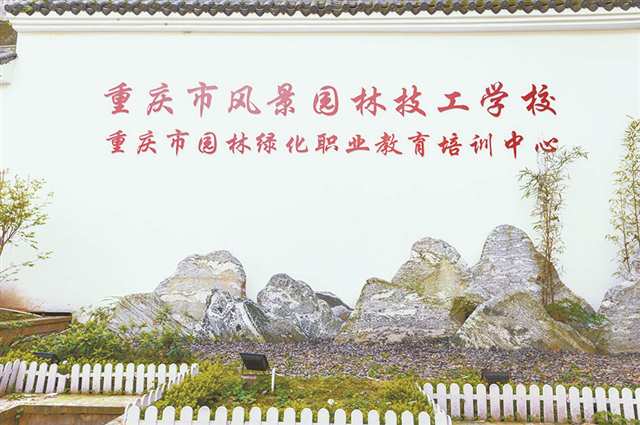 重庆市风景园林技工学校
重庆市园林绿化职业教育培训中心